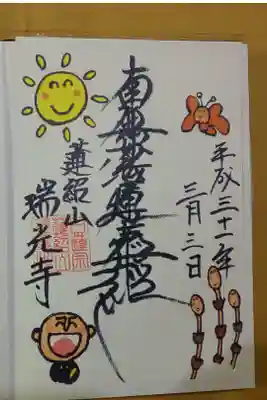 平成三十一年
三月三日
南無妙法蓮華経
蓮紹山
瑞光寺